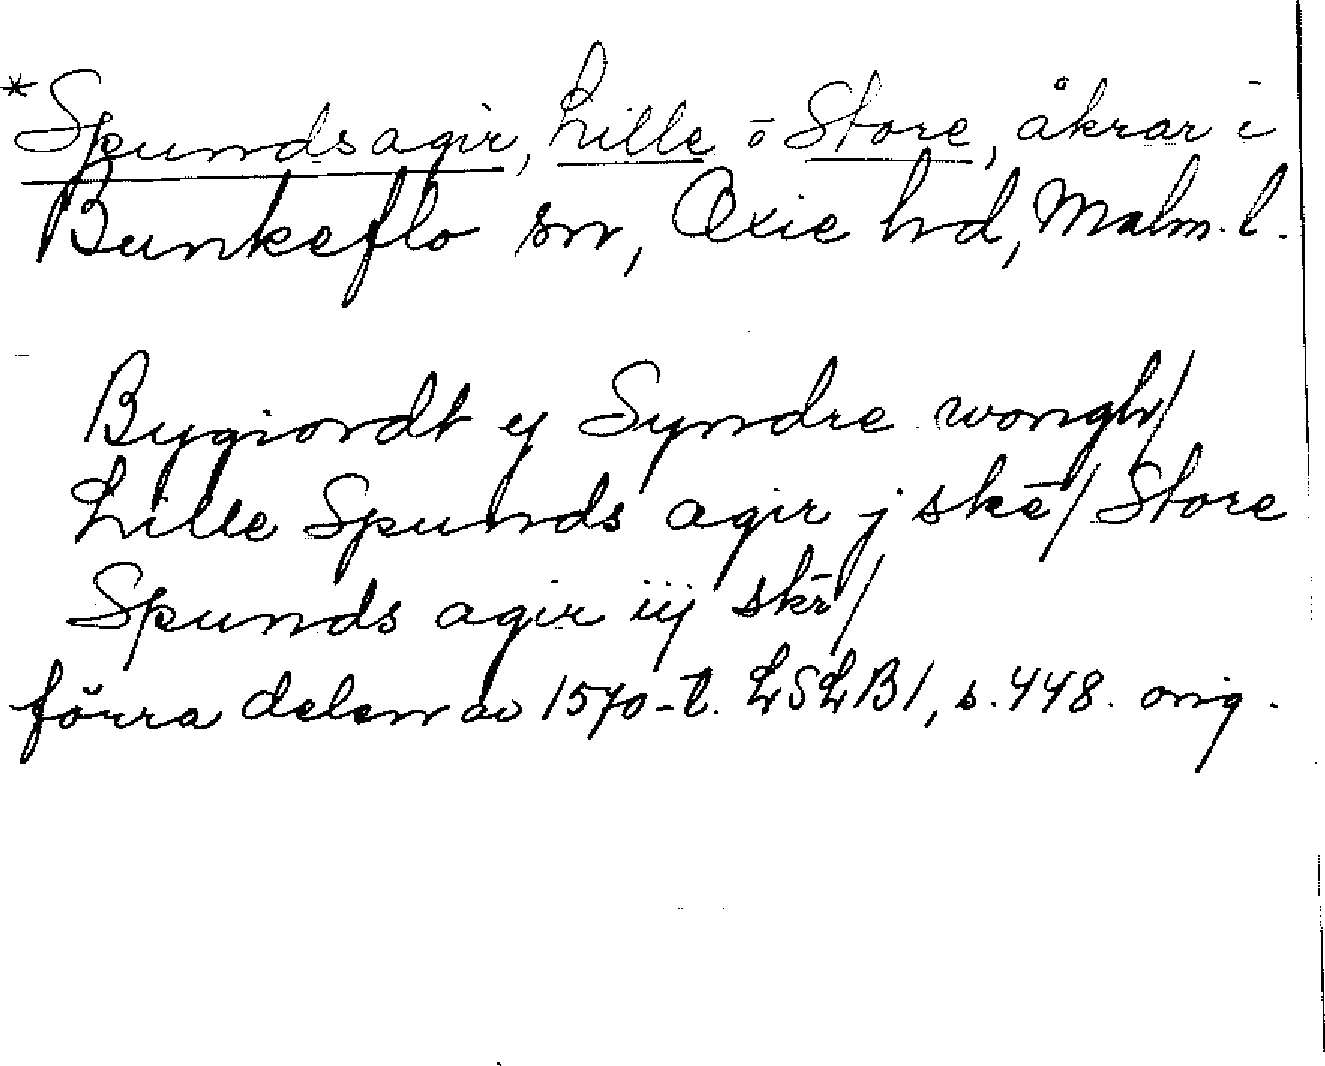 *Spundsagir, Lille o Store, åkrar i
Bunkeflo sn, Oxie hd, Malm. l.
Bygiordt ej Syndre wongh/
Lille Spunds agir j skē/ Store
Spunds agir iij skē/
förra delen av 1570-t. LSLB1, s. 448. orig.